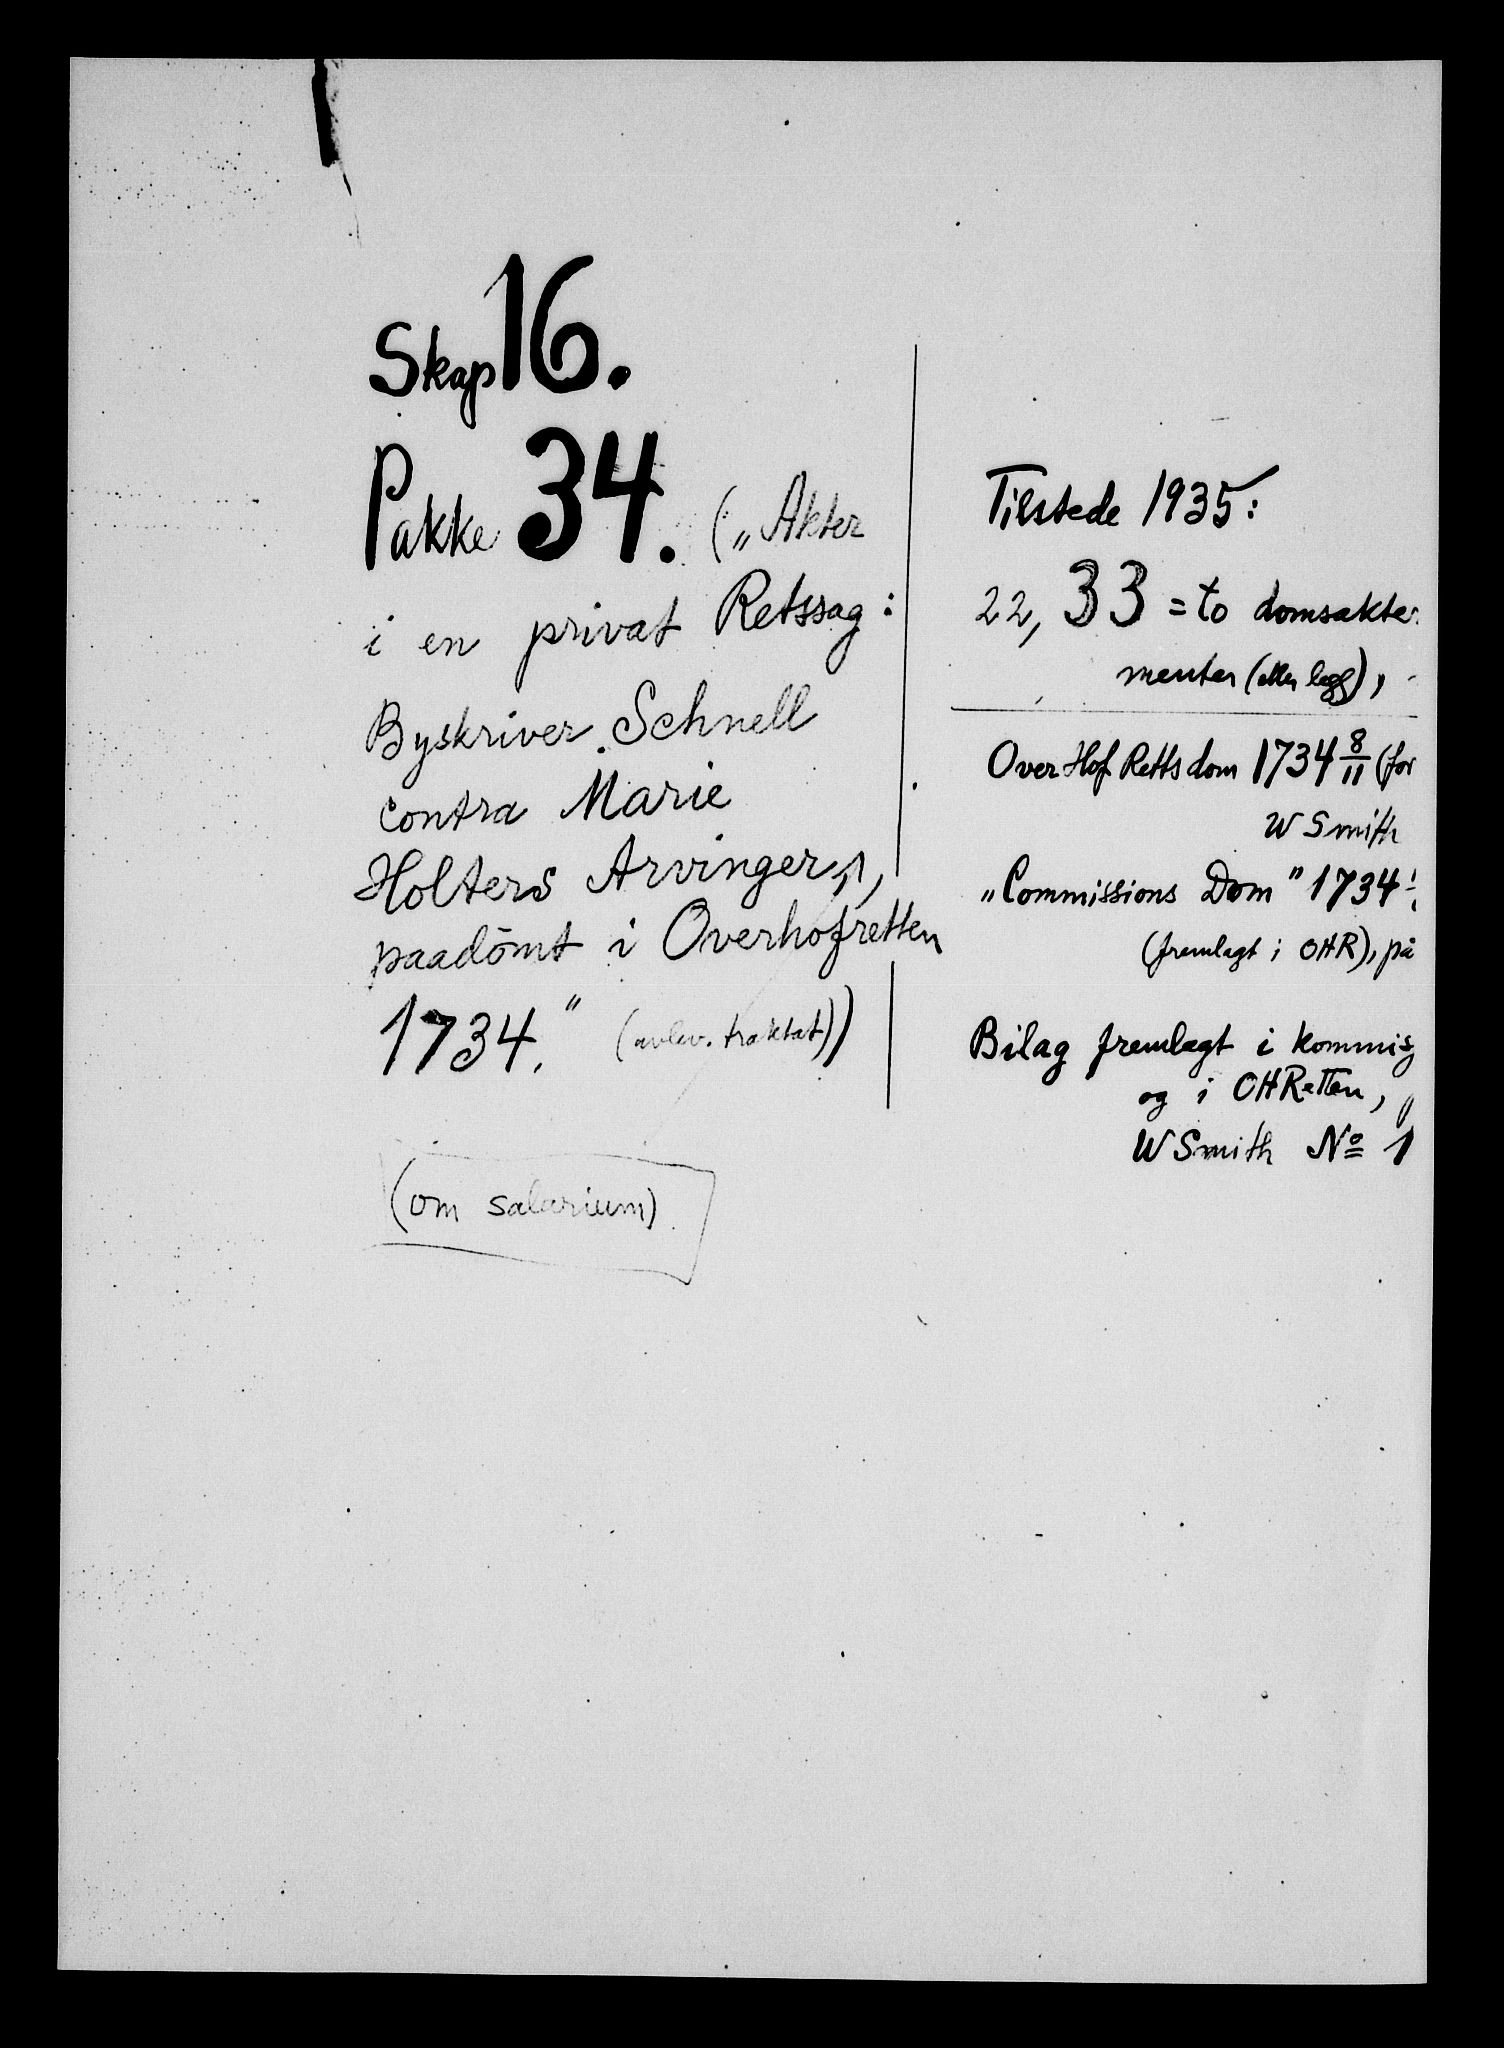 Skap 16.
Pakke 34. („Akter
i en privat Retssag:
Byskriver Schnell
contra Marie
Holters Arvinger",
paadömt i Overhofretten
1734." (avlev. traktat))
(om salarium)
Tilstede 1935:
22, 33 = to domsakter
menter (eller legg),
Over Hof Retts dom 1734 8/11 (for
W Smith
„Commissions Dom" 1734
(fremlagt i OHR), på
Bilag fremlagt i kommis
og i OHRetten,
W Smith No 1